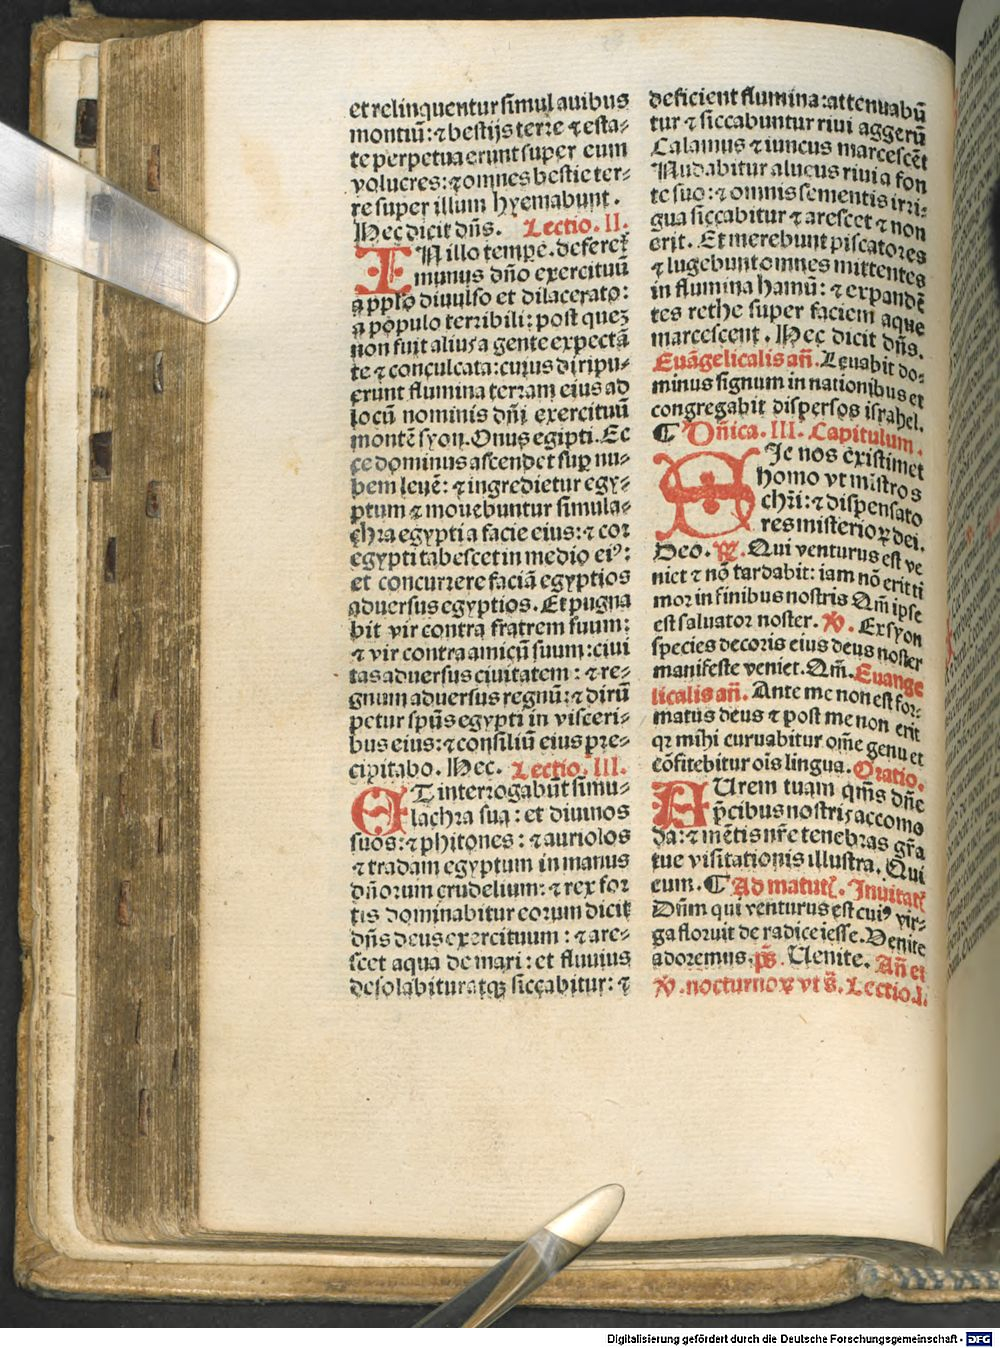 et relinquentur simul auibus
montiū: ⁊ bestijs terre ⁊ esta⸗
te perpetua erunt super eum
volucres: ⁊ omnes bestie ter⸗
re super illum hyemabunt .
Hec dicit dn̄s. Lectio. II.
IN illo tempe. deferet᷑
munus dn̄o exercituū
a pplo diuulso et dilacerato:
a populo terribili: post quez
non fuit alius a gente expectā
te ⁊ conculcata: cuius diripu⸗
erunt flumina terram eius ad
locū nominis dn̄i exercituū
montē syon. Onus egipti. Ec
ce dominus ascendet sup nu⸗
bem leuē: ⁊ ingredietur egy⸗
ptum ⁊ mouebuntur simula⸗
chra egypti a facie eius: ⁊ cor
egypti tabescet in medio eiꝰ:
et concurrere faciā egyptios
aduersus egyptios. Et pugna
bit vir contra fratrem suum:
⁊ vir contra amicū suum: ciui
tas aduersus ciuitatem: ⁊ re⸗
gnum aduersus regnū: ⁊ dirū
petur spūs egypti in visceri⸗
bus eius: ⁊ consiliū eius pre⸗
cipitabo. Hec. Lectio. III.
ET interrogabūt simu⸗
lachra sua: et diuinos
suos: ⁊ phitones: ⁊ auriolos
⁊ tradam egyptum in manus
dn̄orum crudelium: ⁊ rex for
tis dominabitur eorum dicit
dn̄s deus exercituum: ⁊ are⸗
scet aqua de mari: et fluuius
desolabitur atqꝫ siccabitur: ⁊
deficient flumina: attenuabū
tur ⁊ siccabuntur riui aggerū
Calamus ⁊ iuncus marcescēt
Nudabitur alueus riui a fon
te suo: ⁊ omnis sementis irri⸗
gua siccabitur ⁊ arescet ⁊ non
erit. Et merebunt piscatores
⁊ lugebunt omnes mittentes
in flumina hamū: ⁊ expandē
tes rethe super faciem aque
marcescent. Hec dicit dn̄s.
Euāgelicalis an̄. Leuabit do⸗
minus signum in nationibus et
congregabit dispersos israhel.
¶ Dn̄ica. III. Capitulum.
SIc nos existimet
homo vt mīstros
chr̄i: ⁊ dispensato
res misterioꝝ dei.
Deo. ℟. Qui venturus est ve
niet ⁊ nō tardabit: iam nō erit ti
mor in finibus nostris Qm̄ ipse
est saluator noster. ℣. Ex syon
species decoris eius deus noster
manifeste veniet. Qm̄. Euange
licalis an̄. Ante me non est for⸗
matus deus ⁊ post me non erit
qꝛ mihi curuabitur om̄e genu et
cōfitebitur oīs lingua. Oratio.
AUrem tuam qm̄s dn̄e
p̄cibus nostris accomo
da: ⁊ mētis nr̄e tenebras gr̄a
tue visitationis illustra. Qui
cum. ¶ Ad matut̉. Inuitat̉
Dn̄m qui venturus est cuiꝰ vir⸗
ga floruit de radice iesse. Venite
adoremus. ps̄. Uenite. An̄ et
℣. nocturnoꝝ vt s̄. Lectio. I.
Digitalisierung gefördert durch die Deutsche Forschungsgemeinschaft - DFG